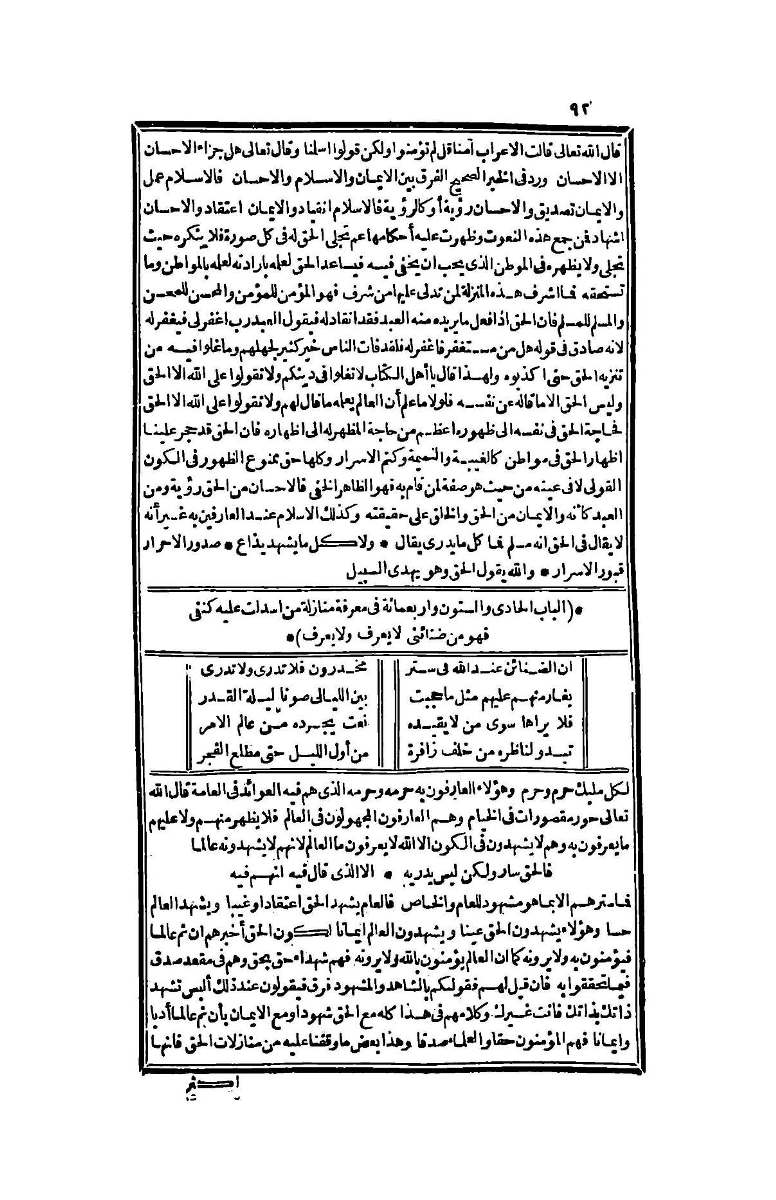 ٩٢
قال الله تعالى قالت الاعراب آمنا قل لم تؤمنوا ولكن قولوا اسلمنا وقال تعالى هل جزاء الاحسان
الا الاحسان ورد فى الخبر الصحيح الفرق بين الايمان والاسلام والاحسان فالاسلام عمل
والايمان تصديق والاحسان رؤية أو كالرؤية فالاسلام انقياد والايمان اعتقاد والاحسان
اشهاد فمن جمع هذه النعوت وظهرت عليه أحكامها عم تجلى الحق له فى كل صورة فلا ينكره حيث
تجلى ولا يظهره فى الموطن الذى يحب ان يخفى فيه فيساعد الحق لعلمه بارادته لعلمه بالمواطن وما
تستحقه فما اشرف هذه المنزلة لمن تدلى عليها من شرف فهو المؤمن للمؤمن والمحسن للمحسن
والمسلم للمسلم فان الحق اذا فعل ما يريده منه العبد فقد انقاد له فيقول العبد رب اغفر لى فيغفر له
لانه صادق فى قوله هل من مستغفر فاغفر له فلقد فات الناس خير كثير لجهلهم وما غلوا فيه من
تنزيه الحق حتى اكذبوه ولهذا قال يا أهل الكتاب لا تغلوا فى دينكم ولا تقولوا على الله الا الحق
وليس الحق الا ما قاله عن نفسه فلولا ما علم أن العالم يعلمه ما قال لهم ولا تقولوا على الله الا الحق
فحاجة الحق فى نفسه الى ظهوره اعظم من حاجة المظهر له الى اظهاره فان الحق قد حجر علينا
اظهار الحق فى مواطن كالغيبة والنميمة وكتم الاسرار وكلها حق ممنوع الظهور فى الكون
القولى لا فى عينه من حيث هو صفة لمن قام به فهو الظاهر الخفى فالاحسان من الحق رؤية ومن
العبد كأنه والايمان من الحق والخلق على حقيقته وكذلك الاسلام عند العارفين به غير أنه
لا يقال فى الحق انه مسلم فما كل ما يدرى يقال * ولا كل ما يشهد يذاع * صدور الاحرار
قبور الاسرار * والله يقول الحق وهو يهدى السبيل
*(الباب الحادى والستون واربعمائة فى معرفة منازلة من اسدلت عليه كنفى
فهو من ضنائنى لا يعرف ولا يعرف)*
ان الضنائن عند الله فى ستر مخدرون فلا تدرى ولا تدرى
يغار منهم عليهم مثل ما حجبت بين الليالى صونا ليلة القدر
فلا يراها سوى من لا يقيده نعت يجرده من عالم الامر
تبدو لناظره من خلف زافرة من أول الليل حتى مطلع الفجر
لكل مليك حرم وحرم وهؤلاء العارفون به حرمه وحرمه الذى هم فيه العوائد فى العامة قال الله
تعالى حور مقصورات فى الخيام وهم العارفون المجهولون فى العالم فلا يظهر منهم ولا عليهم
ما يعرفون به وهم لا يشهدون فى الكون الا الله لا يعرفون ما العالم لانهم لا يشهدونه عالما
فالحق سار ولكن ليس يدريه * الا الذى قال فيه انهم فيه
فما سترهم الا بما هو مشهود للعام والخاص فالعام يشهد الحق اعتقادا وغيبا ويشهد العالم
حسا وهؤلاء يشهدون الحق عينا ويشهدون العالم ايمانا لكون الحق أخبرهم ان ثم عالما
فيؤمنون به ولا يرونه كما ان العالم يؤمنون بالله ولا يرونه فهم شهداء حق بحق وهم فى مقعد صدق
فيما تحققوا به فان قيل لهم فقولكم بالشاهد والمشهود فرق فيقولون عند ذلك أليس تشهد
ذاتك بذاتك فانت غيرك وكلامهم فى هذا كله مع الحق شهودا ومع الايمان بأن ثم عالما أدبا
وايمانا فهم المؤمنون حقا والعلماء صدقا وهذا بعض ما وقفنا عليه من منازلات الحق فانها
اكثر